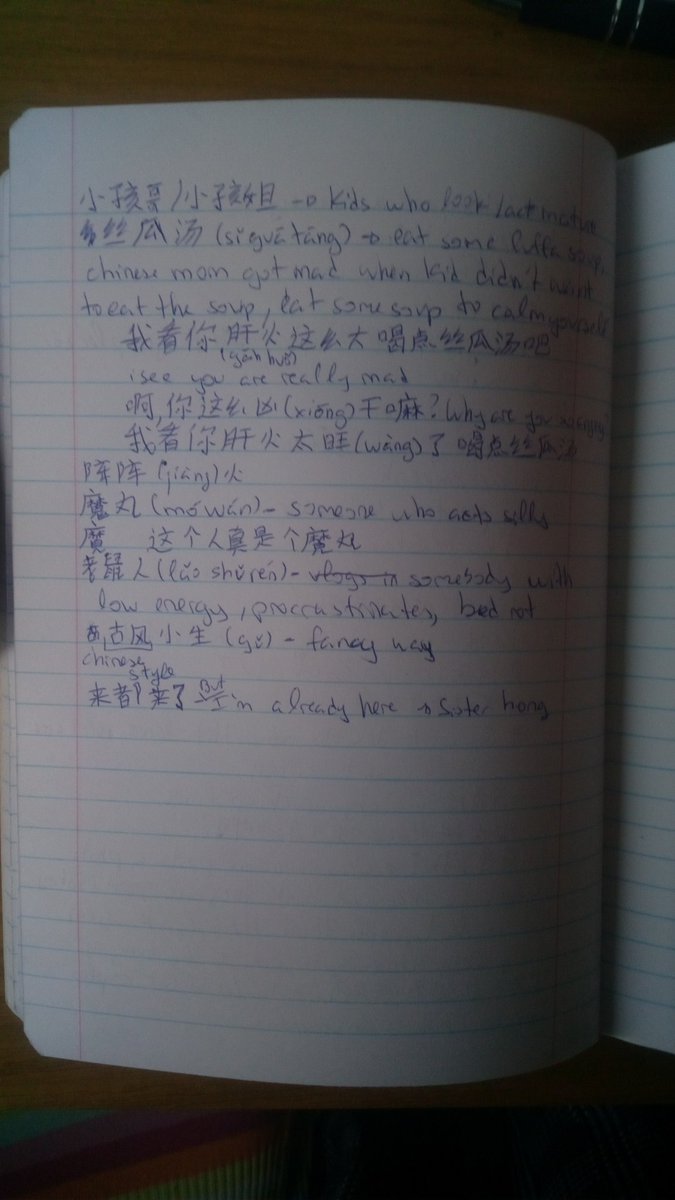 小孩哥/小孩姐 → kids who look/act mature
丝瓜汤 (sī guā tāng) → eat some luffa soup,
chinese mom got mad when kid didn't want
to eat the soup, eat some soup to calm yourself
我看你肝火这么大喝点丝瓜汤吧
(gān huǒ)
i see you are really mad
啊,你这么凶(xiōng)干嘛? Why are you
我看你肝火太旺(wàng)了 喝点丝瓜汤
阵阵 火
魔丸 (mó wán) - someone who acts silly
魔 这个人真是个魔丸
老鼠人 (lǎo shǔ rén) - vlogs in somebody with
low energy, proccrastinates, bed rot
古风小生 (gǔ) - fancy way
chinese style
来都来了 But I'm already here → Sister hong